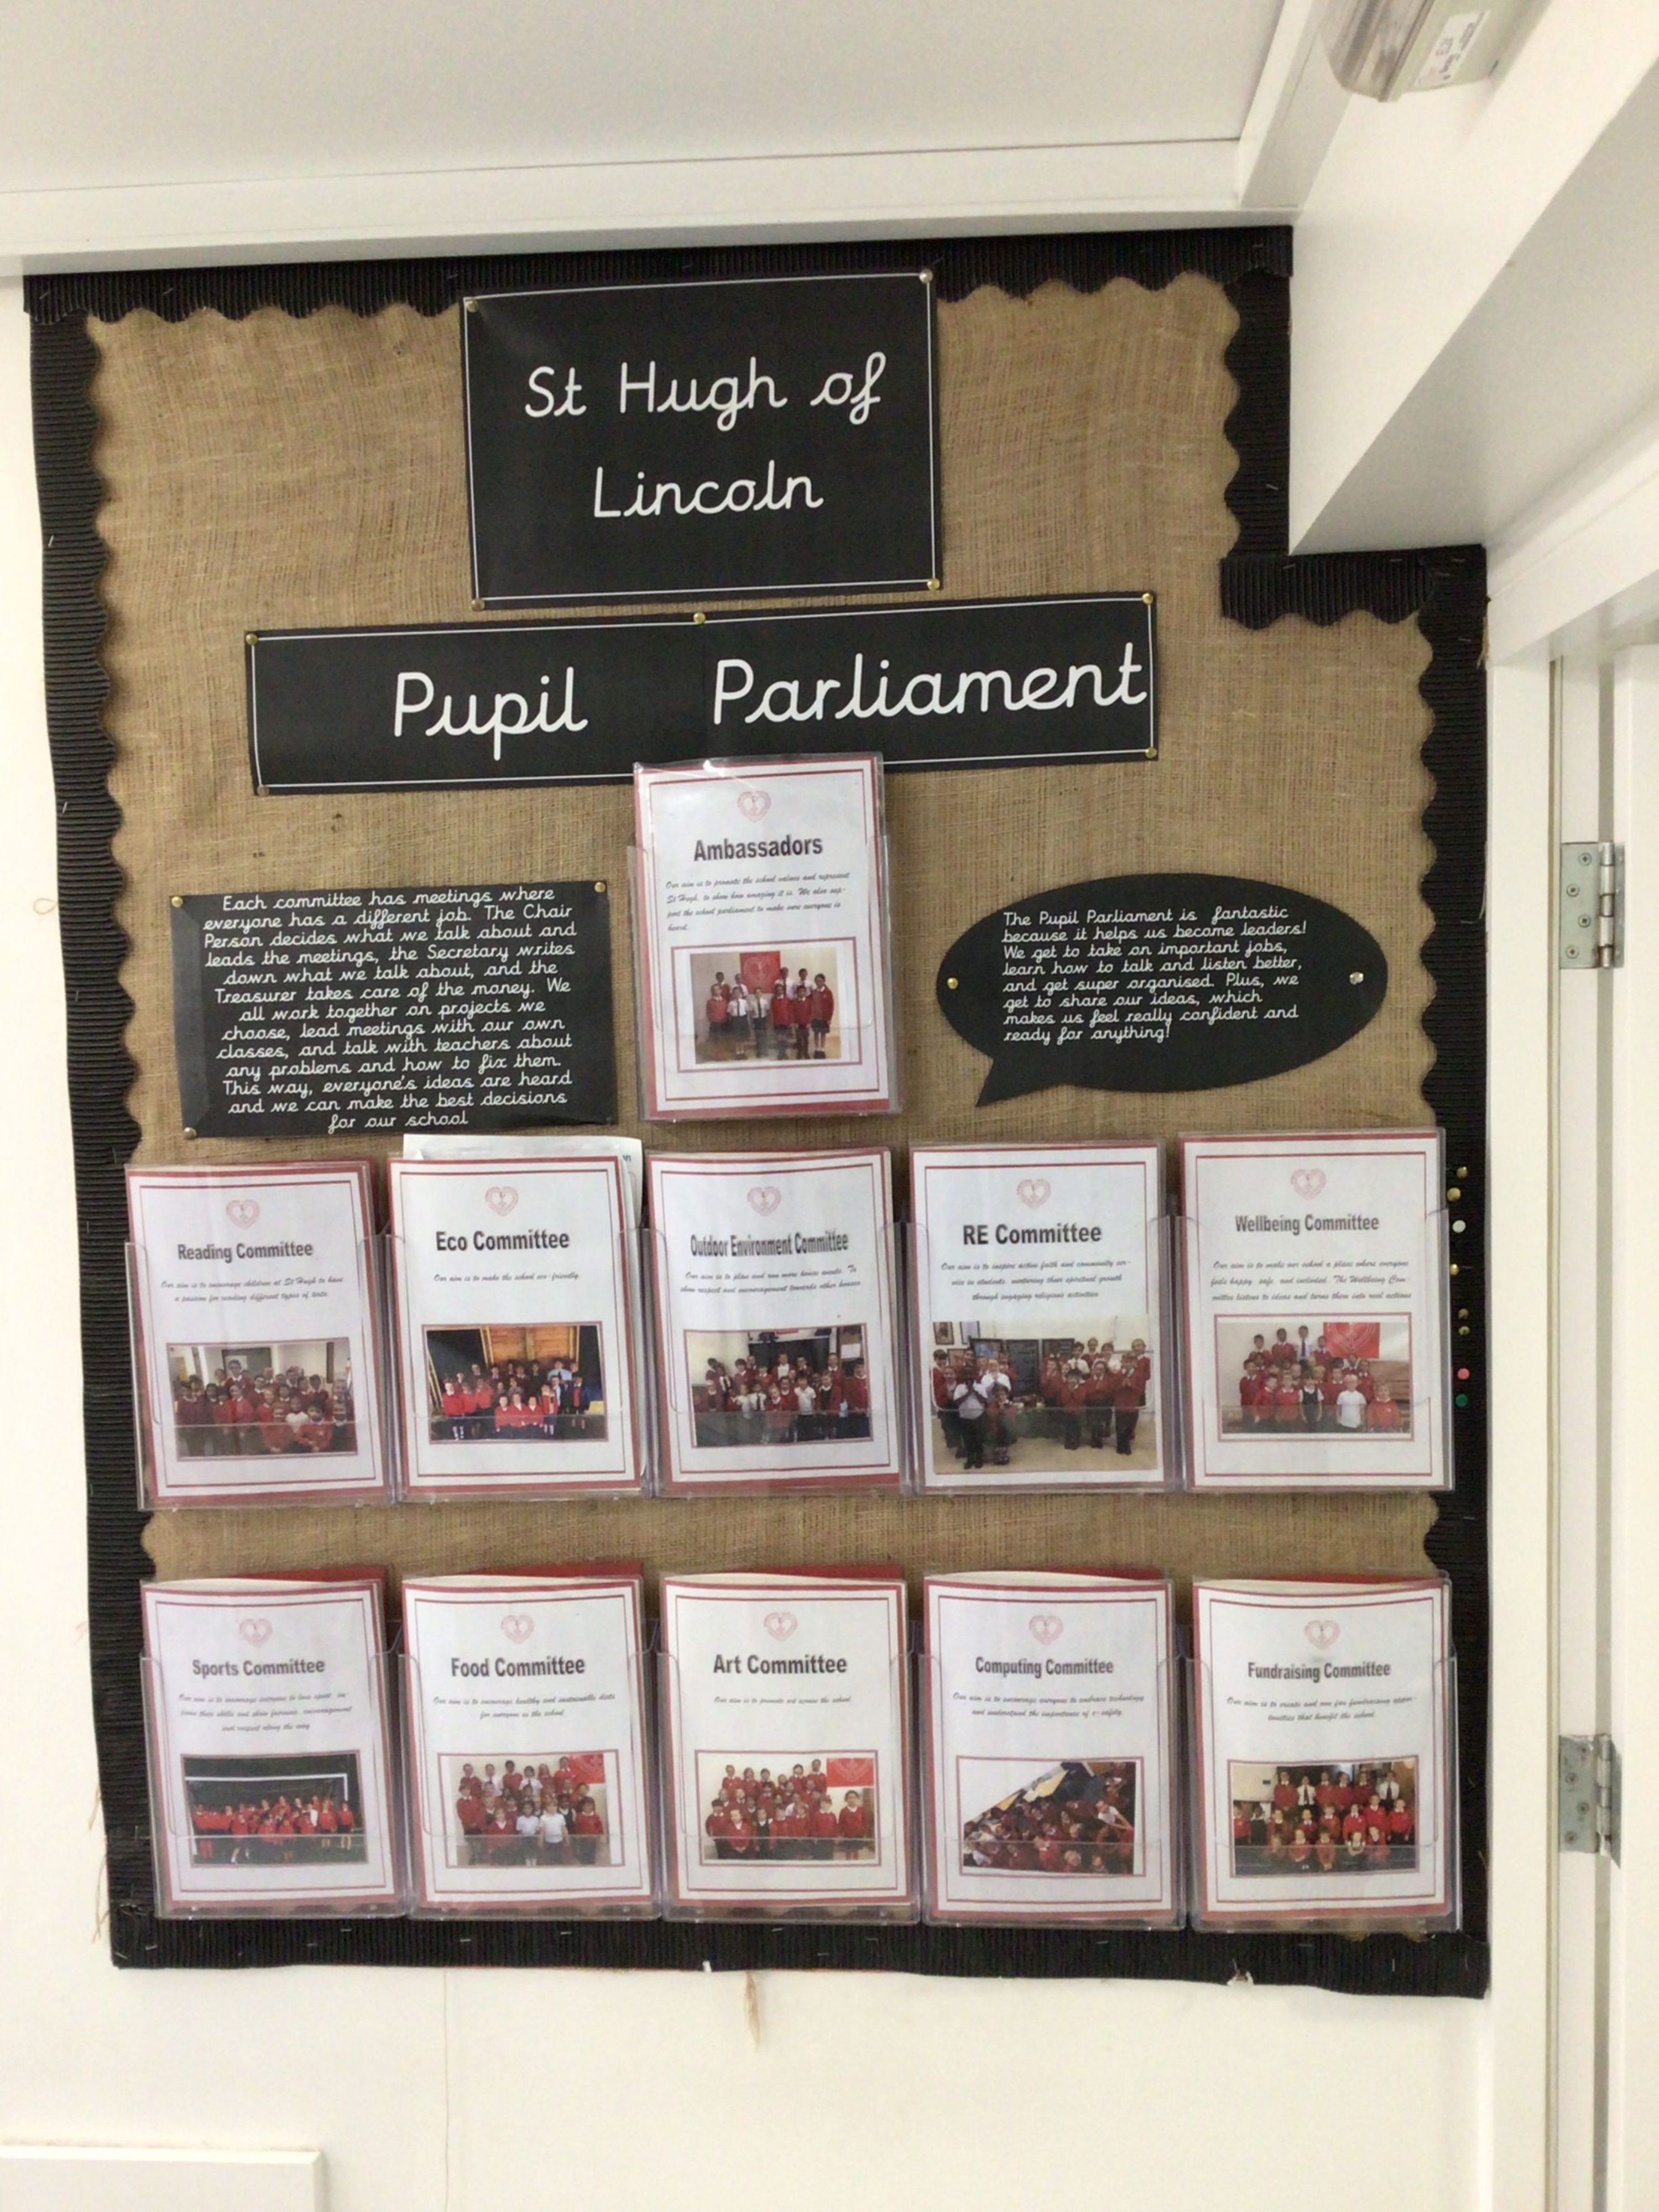 St Hugh of
Lincoln
Pupil Parliament
Ambassadors
Our aim is to promote the school values and represent
St Hugh, to show how amazing it is. We also sup-
port the school parliament to make sure everyone is
heard.
Each committee has meetings where
everyone has a different job. The Chair
Person decides what we talk about and
leads the meetings, the Secretary writes
down what we talk about, and the
Treasurer takes care of the money. We
all work together on projects we
choose, lead meetings with our own
classes, and talk with teachers about
any problems and how to fix them.
This way, everyone's ideas are heard
and we can make the best decisions
for our school
The Pupil Parliament is fantastic
because it helps us become leaders!
We get to take on important jobs,
learn how to talk and listen better,
and get super organised. Plus, we
get to share our ideas, which
makes us feel really confident and
ready for anything!
Reading Committee
Our aim is to encourage children at St Hugh to have
a passion for reading different types of texts.
Eco Committee
Our aim is to make the school eco-friendly.
Outdoor Environment Committee
Our aim is to plan and run more house events. To
show respect and encouragement towards other houses
RE Committee
Our aim is to inspire active faith and community ser-
vice in students, nurturing their spiritual growth
through engaging religious activities
Wellbeing Committee
Our aim is to make our school a place where everyone
feels happy, safe, and included. The Wellbeing Com-
mittee listens to ideas and turns them into real actions
Sports Committee
Our aim is to encourage everyone to love sport, im-
prove their skills and show fairness, encouragement
and respect along the way
Food Committee
Our aim is to encourage healthy and sustainable diets
for everyone in the school.
Art Committee
Our aim is to promote art across the school
Computing Committee
Our aim is to encourage everyone to embrace technology
and understand the importance of e-safety
Fundraising Committee
Our aim is to create and run fun fundraising oppor-
tunities that benefit the school.